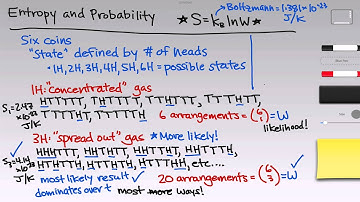 Entropy and Probability
★S=K_B lnW★
Boltzmann=1.381×10^-23
J/K
Six coins
"State" defined by # of heads
•1H,2H,3H,4H,5H,6H=possible states
1H:"concentrated" gas
HTTTTT, THTTTT, TTHTTT, TTTHTT,
TTTTHT, TTTTTH
S₁=2.47
×10^-23
J/K
6 arrangements=(6 1)=W
likelihood!
3H:"spread out" gas *More likely!
HHHTTT, HHTHTT, HHTTHT, HHTTTH,
HTHHTT, HTHTHT, HTHTTH, HTTHHT, etc....
J/K
most likely result ✓
dominates over t
most more ways!
20 arrangements=(6 3)=W